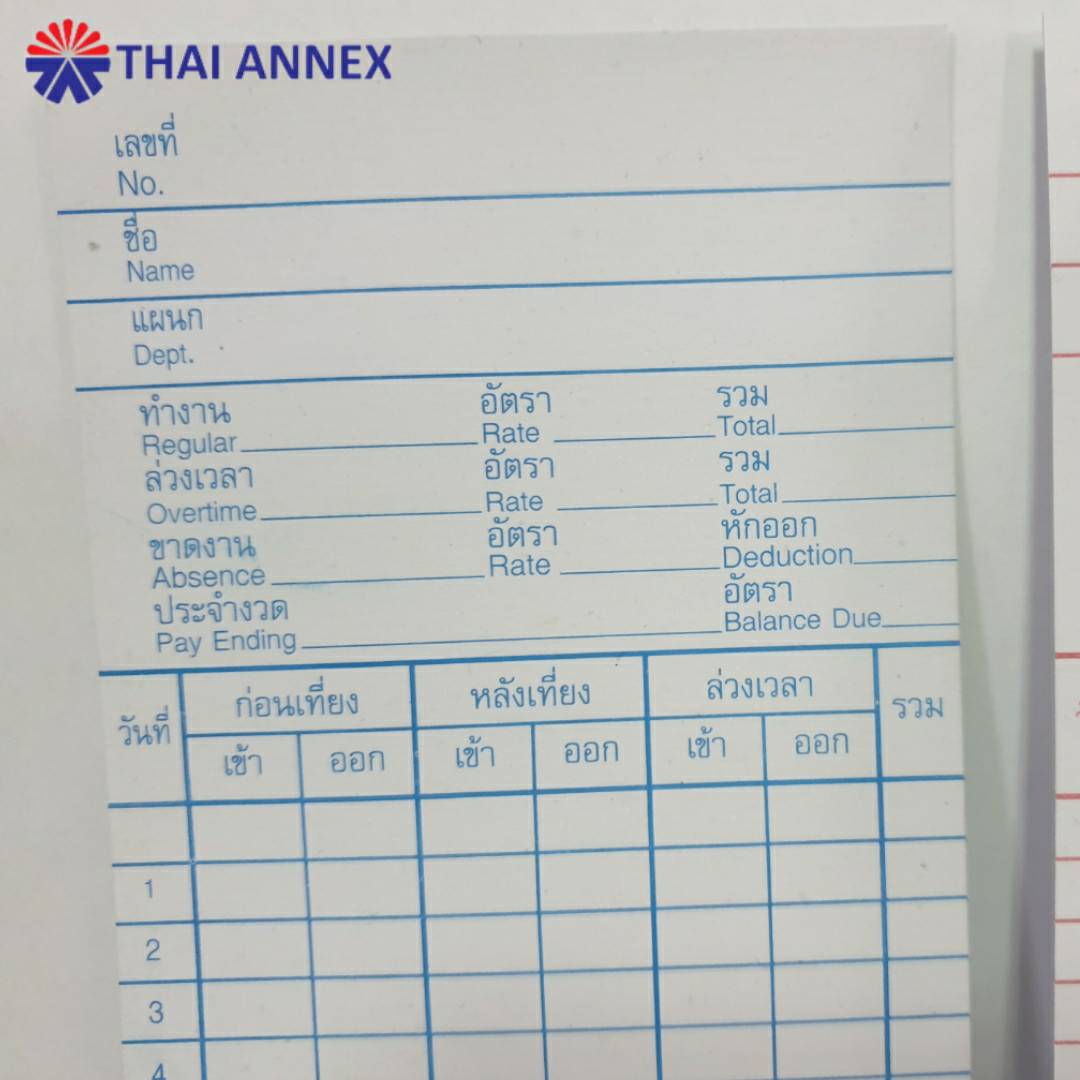 THAI ANNEX
เลขที่
No.
ชื่อ
Name
แผนก
Dept.
ทำงาน อัตรา รวม
Regular Rate Total
ล่วงเวลา อัตรา รวม
Overtime Rate Total
ขาดงาน อัตรา หักออก
Absence Rate Deduction
ประจำงวด อัตรา
Pay Ending Balance Due
วันที่ ก่อนเที่ยง หลังเที่ยง ล่วงเวลา รวม
เข้า ออก เข้า ออก เข้า ออก
1
2
3
4